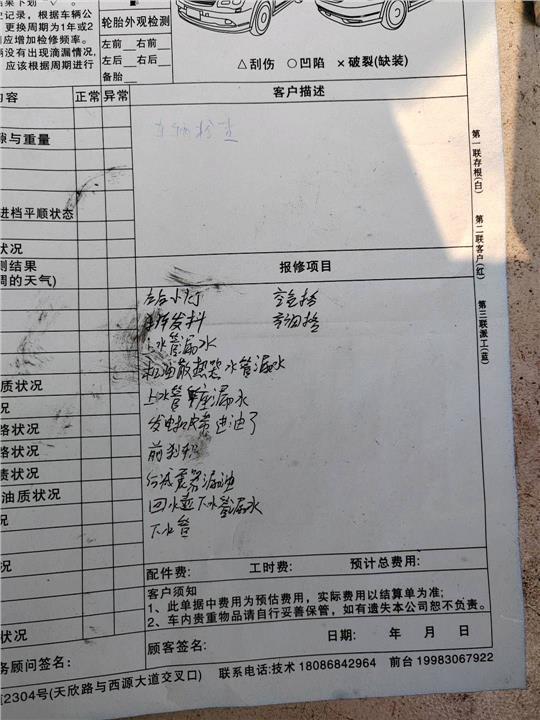 史记录，根据车辆公
更换周期为1年或2
应增加检修频率。
辆没有出现滴漏情况，
应该根据周期进行
轮胎外观检测
左前 右前
左后 右后
备胎
△刮伤 ○凹陷 ×破裂(缺装)
内容 正常 异常 客户描述
车辆检查
隙与重量
进档平顺状态
状况
测结果
周的天气)
报修项目
左右小灯 空气格
空调格
上水管漏水
机油散热器水管漏水
上水管座漏水
发电机皮带进油了
前刹车
后减震器漏油
回水壶下水管漏水
下水管
质状况
况
路状况
路状况
责状况
油质状况
况
况
状况
配件费: 工时费: 预计总费用:
客户须知
1、此单据中费用为预估费用，实际费用以结算单为准;
2、车内贵重物品请自行妥善保管，如有遗失本公司恕不负责。
日期: 年 月 日
务顾问签名: 顾客签名:
2304号(天欣路与西源大道交叉口) 联系电话:技术 18086842964 前台 19983067922
第一联存根(白)
第二联客户(红)
第三联派工(蓝)